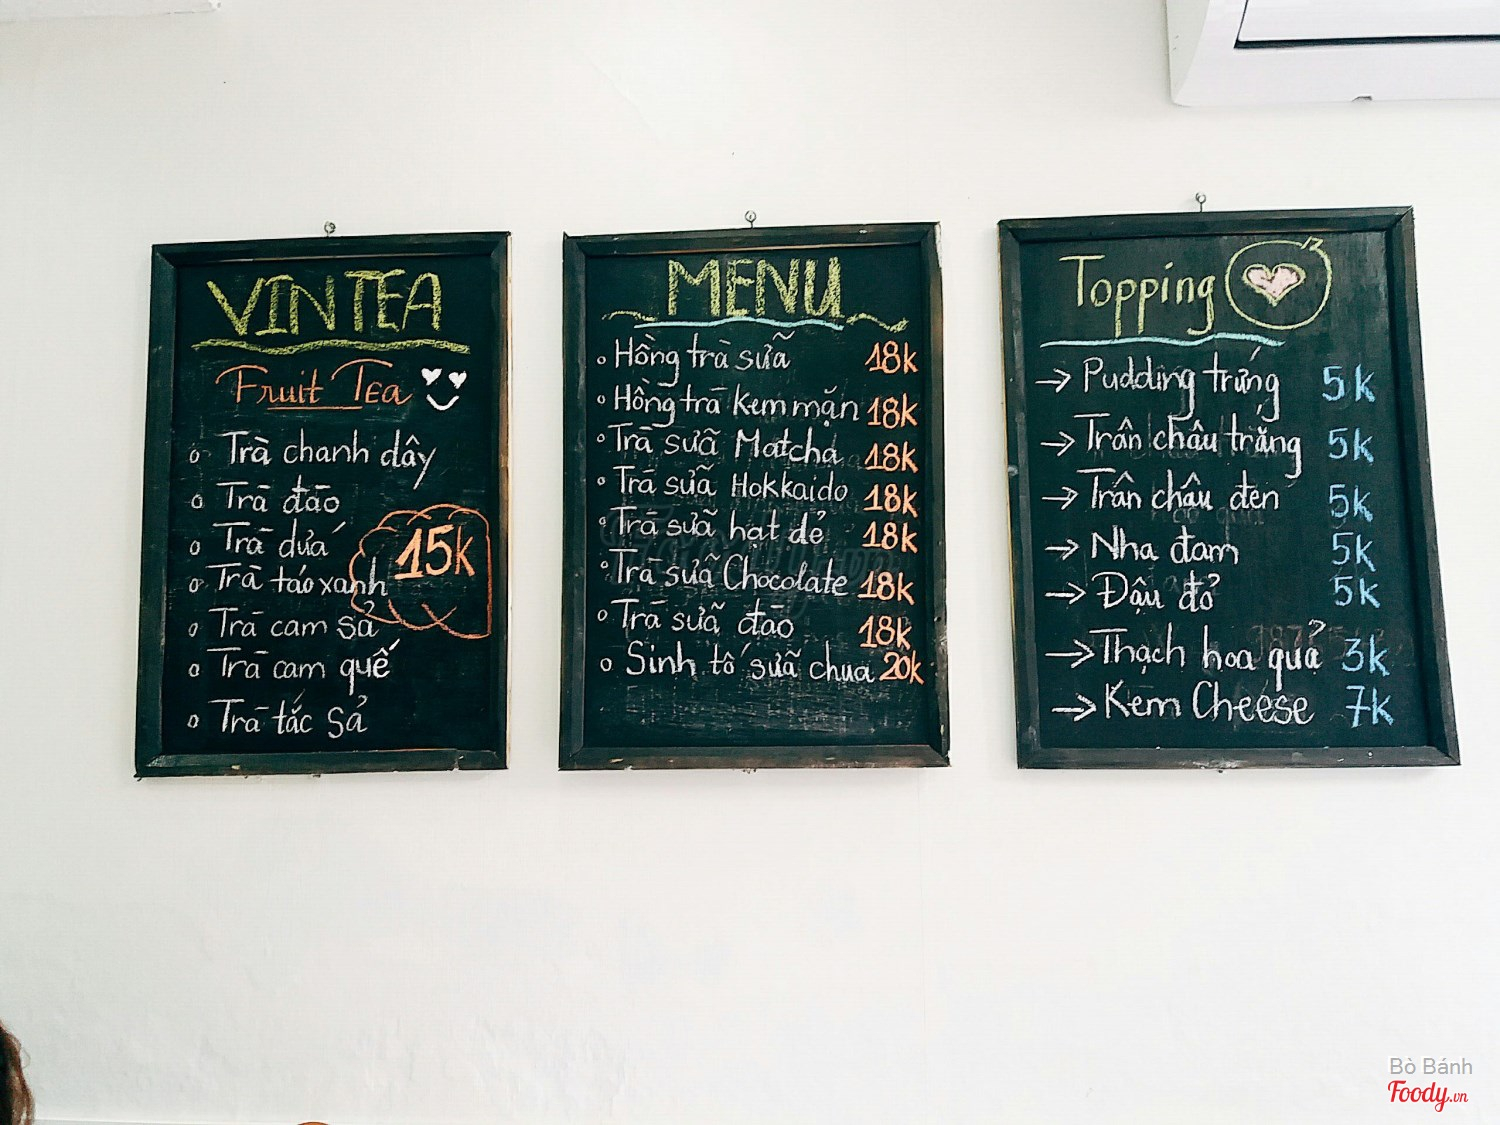 VINTEA
Fruit Tea
Trà chanh dây
Trà đào
Trà dứa
Trà táo xanh
Trà cam sả
Trà cam quế
Trà tắc sả
15k
MENU
Hồng trà sữa 18k
Hồng trà kem mặn 18k
Trà sữa Matcha 18k
Trà sữa Hokkaido 18k
Trà sữa hạt dẻ 18k
Trà sữa Chocolate 18k
Trà sữa đào 18k
Sinh tố sữa chua 20k
Topping
→ Pudding trứng 5k
→ Trân châu trắng 5k
→ Trân châu đen 5k
→ Nha đam 5k
→ Đậu đỏ 5k
→ Thạch hoa quả 3k
→ Kem Cheese 7k
Bò Bánh
Foody.vn